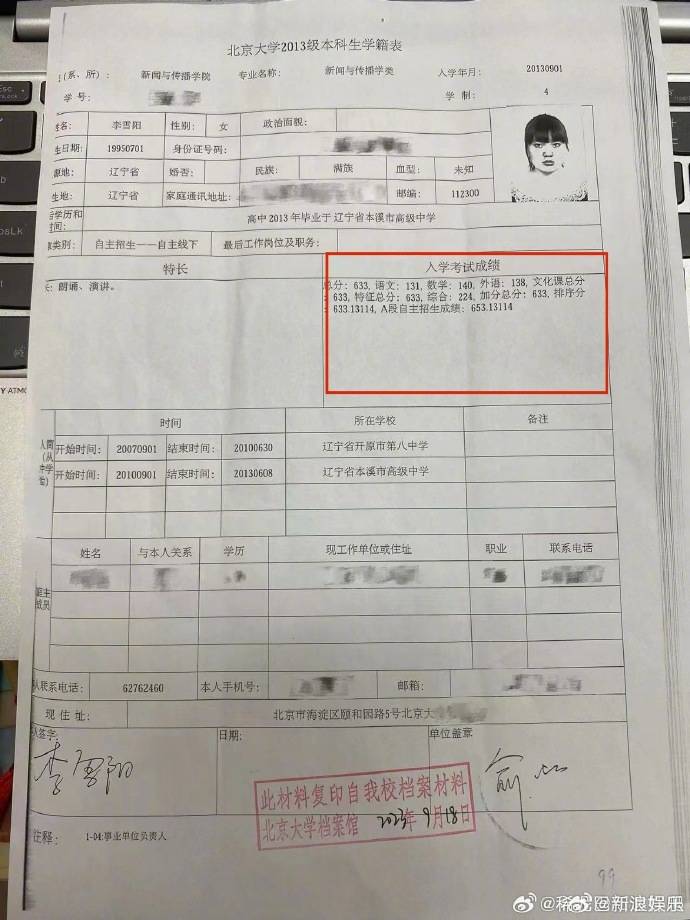 北京大学2013级本科生学籍表
(系、所)： 新闻与传播学院 专业名称： 新闻与传播学类 入学年月： 20130901
学号： 学制： 4
姓名： 李雪阳 性别： 女 政治面貌：
生日期： 19950701 身份证号码：
源地： 辽宁省 婚否： 民族： 满族 血型： 未知
生地： 辽宁省 家庭通讯地址： 邮编： 112300
学历和
时间： 高中 2013 年毕业于 辽宁省本溪市高级中学
类别： 自主招生——自主线下 最后工作岗位及职务：
特长 入学考试成绩
长：朗诵、演讲。
总分：633, 语文：131, 数学：140, 外语：138, 文化课总分
：633, 特征总分：633, 综合：224, 加分总分：633, 排序分
：633.13114, A段自主招生成绩：653.13114
时间 所在学校 备注
开始时间： 20070901 结束时间： 20100630 辽宁省开原市第八中学
开始时间： 20100901 结束时间： 20130608 辽宁省本溪市高级中学
姓名 与本人关系 学历 现工作单位或住址 职业 联系电话
联系电话： 62762460 本人手机号： 邮箱：
现住址： 北京市海淀区颐和园路5号北京大
签字： 日期： 单位盖章
李雪阳
此材料复印自我校档案材料
北京大学档案馆 2023年9月18日
注释： 1-04:事业单位负责人
99
@新浪娱乐